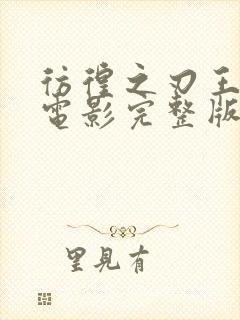 彷徨之刃王
電影完整版
里見有